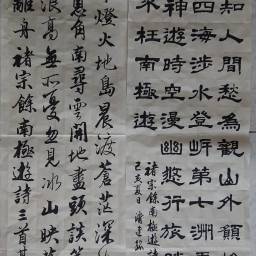 知人間愁為觀山外
四海涉水登岍第七洲
神遊時空漫幽行旅
水枉南極遊
褚宗餘南極遊詩
己亥夏日
燈火地島晨渡蒼茫深
角南尋雲開地盡頭談笑
浪高無所憂忽見冰山映
離舟 褚宗餘南極遊詩三首其